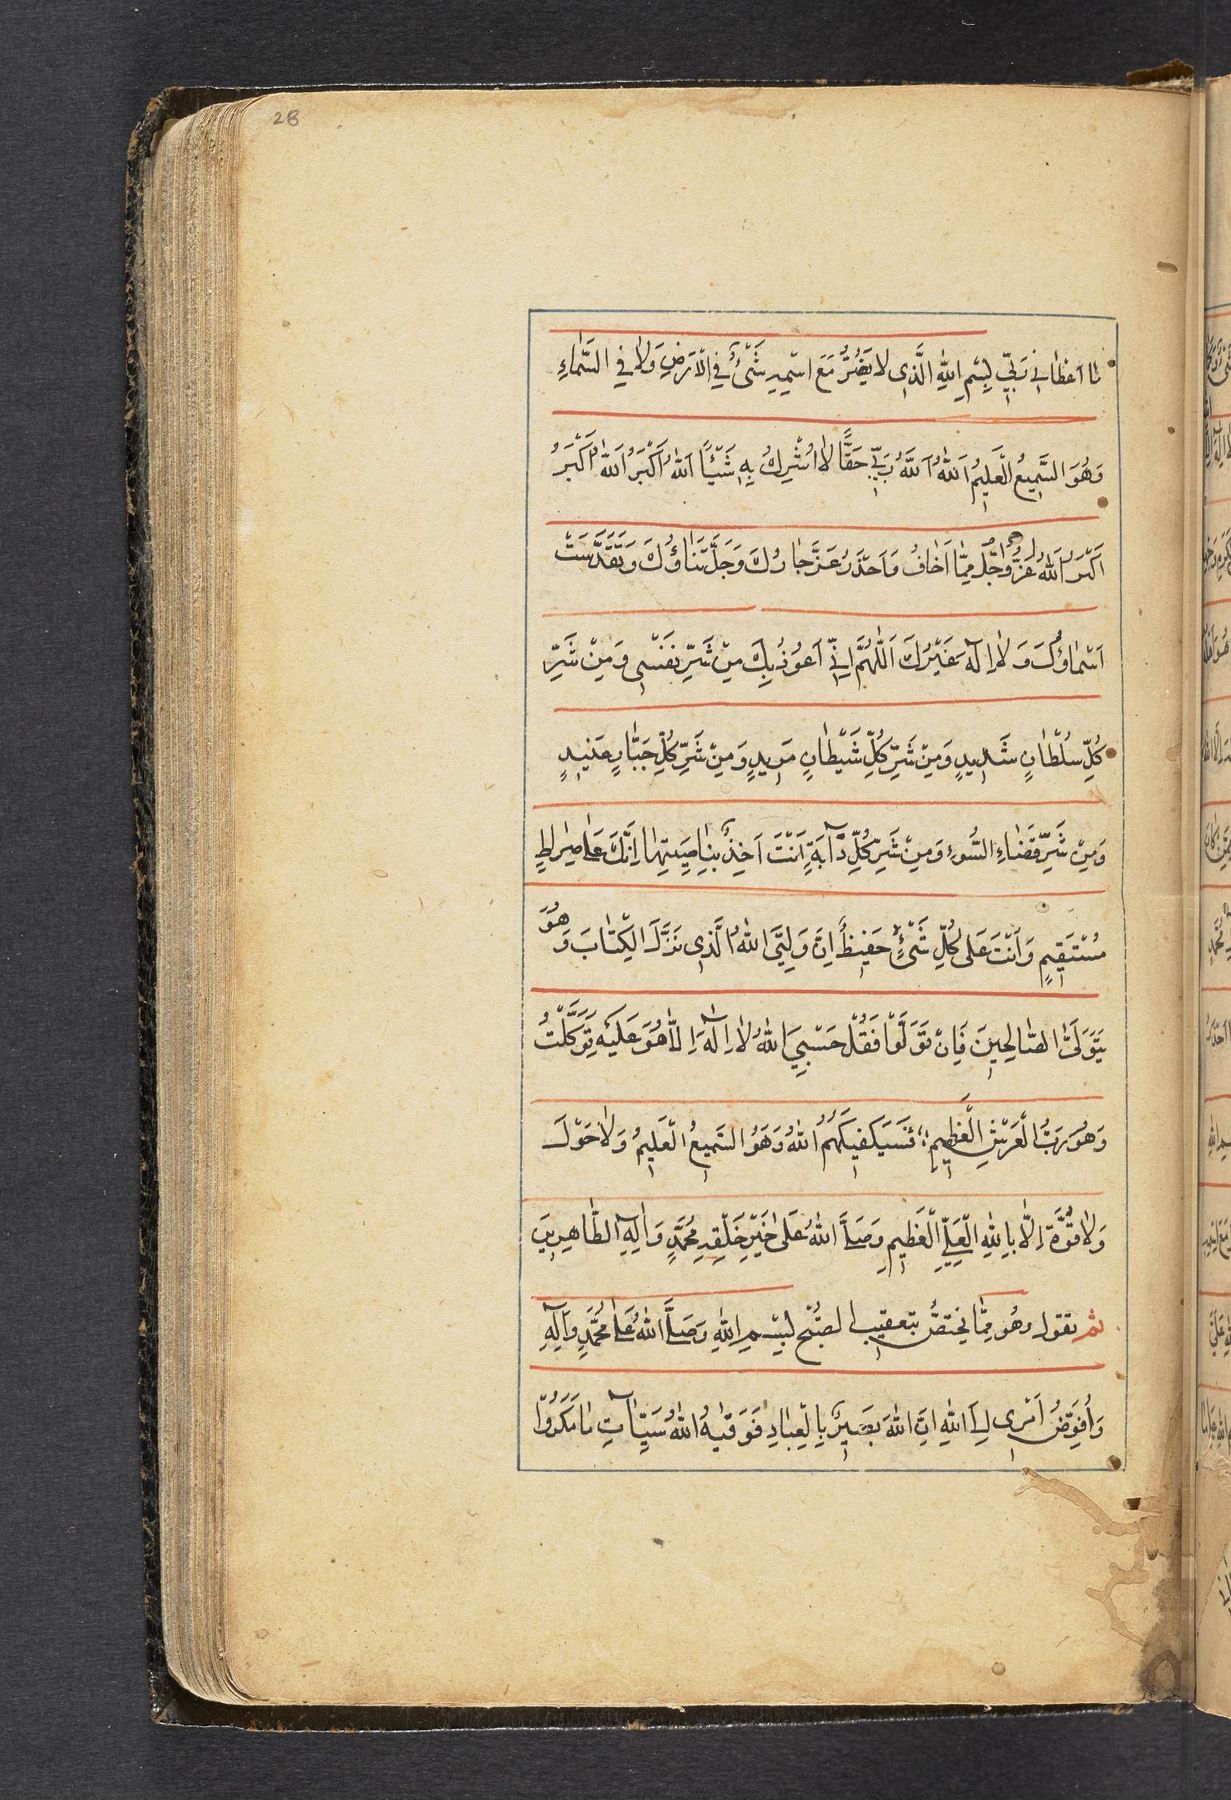 28
مٰا اَعْطٰانِي رَبّيِ بِسْمِ اللهِ الَّذِى لا يَضُرُّ مَعَ اسْمِهِ شَىْءٌ فِي الْاَرْضِ وَلٰا فِي السَّمٰاءِ
وَهُوَ السَّمِيعُ الْعَلِيمُ اَللهُ اَللهُ رَبّيِ حَقًّا لٰا اُشْرِكُ بِهِ شَيْئًا اَللهُ اَكْبَرُ اَللهُ اَكْبَرُ
اَكْبَرُ اَللهُ عَزُّ وَاَجَلُّ مِمّٰا اَخٰافُ وَاَحْذَرُ عَزَّ جٰارُكَ وَجَلَّ ثَنٰاؤُكَ وَتَقَدَّسَتْ
اَسْمٰاؤُكَ وَلٰا اِلٰهَ غَيْرُكَ اَللّٰهُمَّ اِنّيِ اَعُوذُ بِكَ مِنْ شَرِّ نَفْسِى وَمِنْ شَرِّ
كُلِّ سُلْطٰانٍ شَدِيدٍ وَمِنْ شَرِّ كُلِّ شَيْطٰانٍ مَرِيدٍ وَمِنْ شَرِّ كُلِّ جَبّٰارٍ عَنِيدٍ
وَمِنْ شَرِّ قَضٰاءِ السُّوءِ وَمِنْ شَرِّ كُلِّ دٰآبَّةٍ اَنْتَ اٰخِذٌ بِنٰاصِيَتِهٰا اِنَّكَ عَلىٰ صِرٰاطٍ
مُسْتَقِيمٍ وَاَنْتَ عَلىٰ كُلِّ شَىْءٍ حَفِيظٌ اِنَّ وَلِيِّىَ اللهُ الَّذِى نَزَّلَ الْكِتٰابَ وَهُوَ
يَتَوَلَّى الصّٰالِحِينَ فَاِنْ تَوَلَّوْا فَقُلْ حَسْبِيَ اللهُ لٰا اِلٰهَ اِلّٰا هُوَ عَلَيْهِ تَوَكَّلْتُ
وَهُوَ رَبُّ الْعَرْشِ الْعَظِيمِ فَسَيَكْفِيكَهُمُ اللهُ وَهُوَ السَّمِيعُ الْعَلِيمُ وَلٰا حَوْلَ
وَلٰا قُوَّةَ اِلّٰا بِاللهِ الْعَلِيِّ الْعَظِيمِ وَصَلَّى اللهُ عَلىٰ خَيْرِ خَلْقِهِ مُحَمَّدٍ وَاٰلِهِ الطّٰاهِرِينَ
ثم تقول وهُو مِمّٰا يختصُّ بتعقيب الصُبْح بِسْمِ اللهِ وَصَلَّى اللهُ عَلىٰ مُحَمَّدٍ وَاٰلِهِ
وَاُفَوِّضُ اَمْرِى اِلَى اللهِ اِنَّ اللهَ بَصِيرٌ بِالْعِبٰادِ فَوَقٰيهُ اللهُ سَيِّئٰاتِ مٰا مَكَرُوا